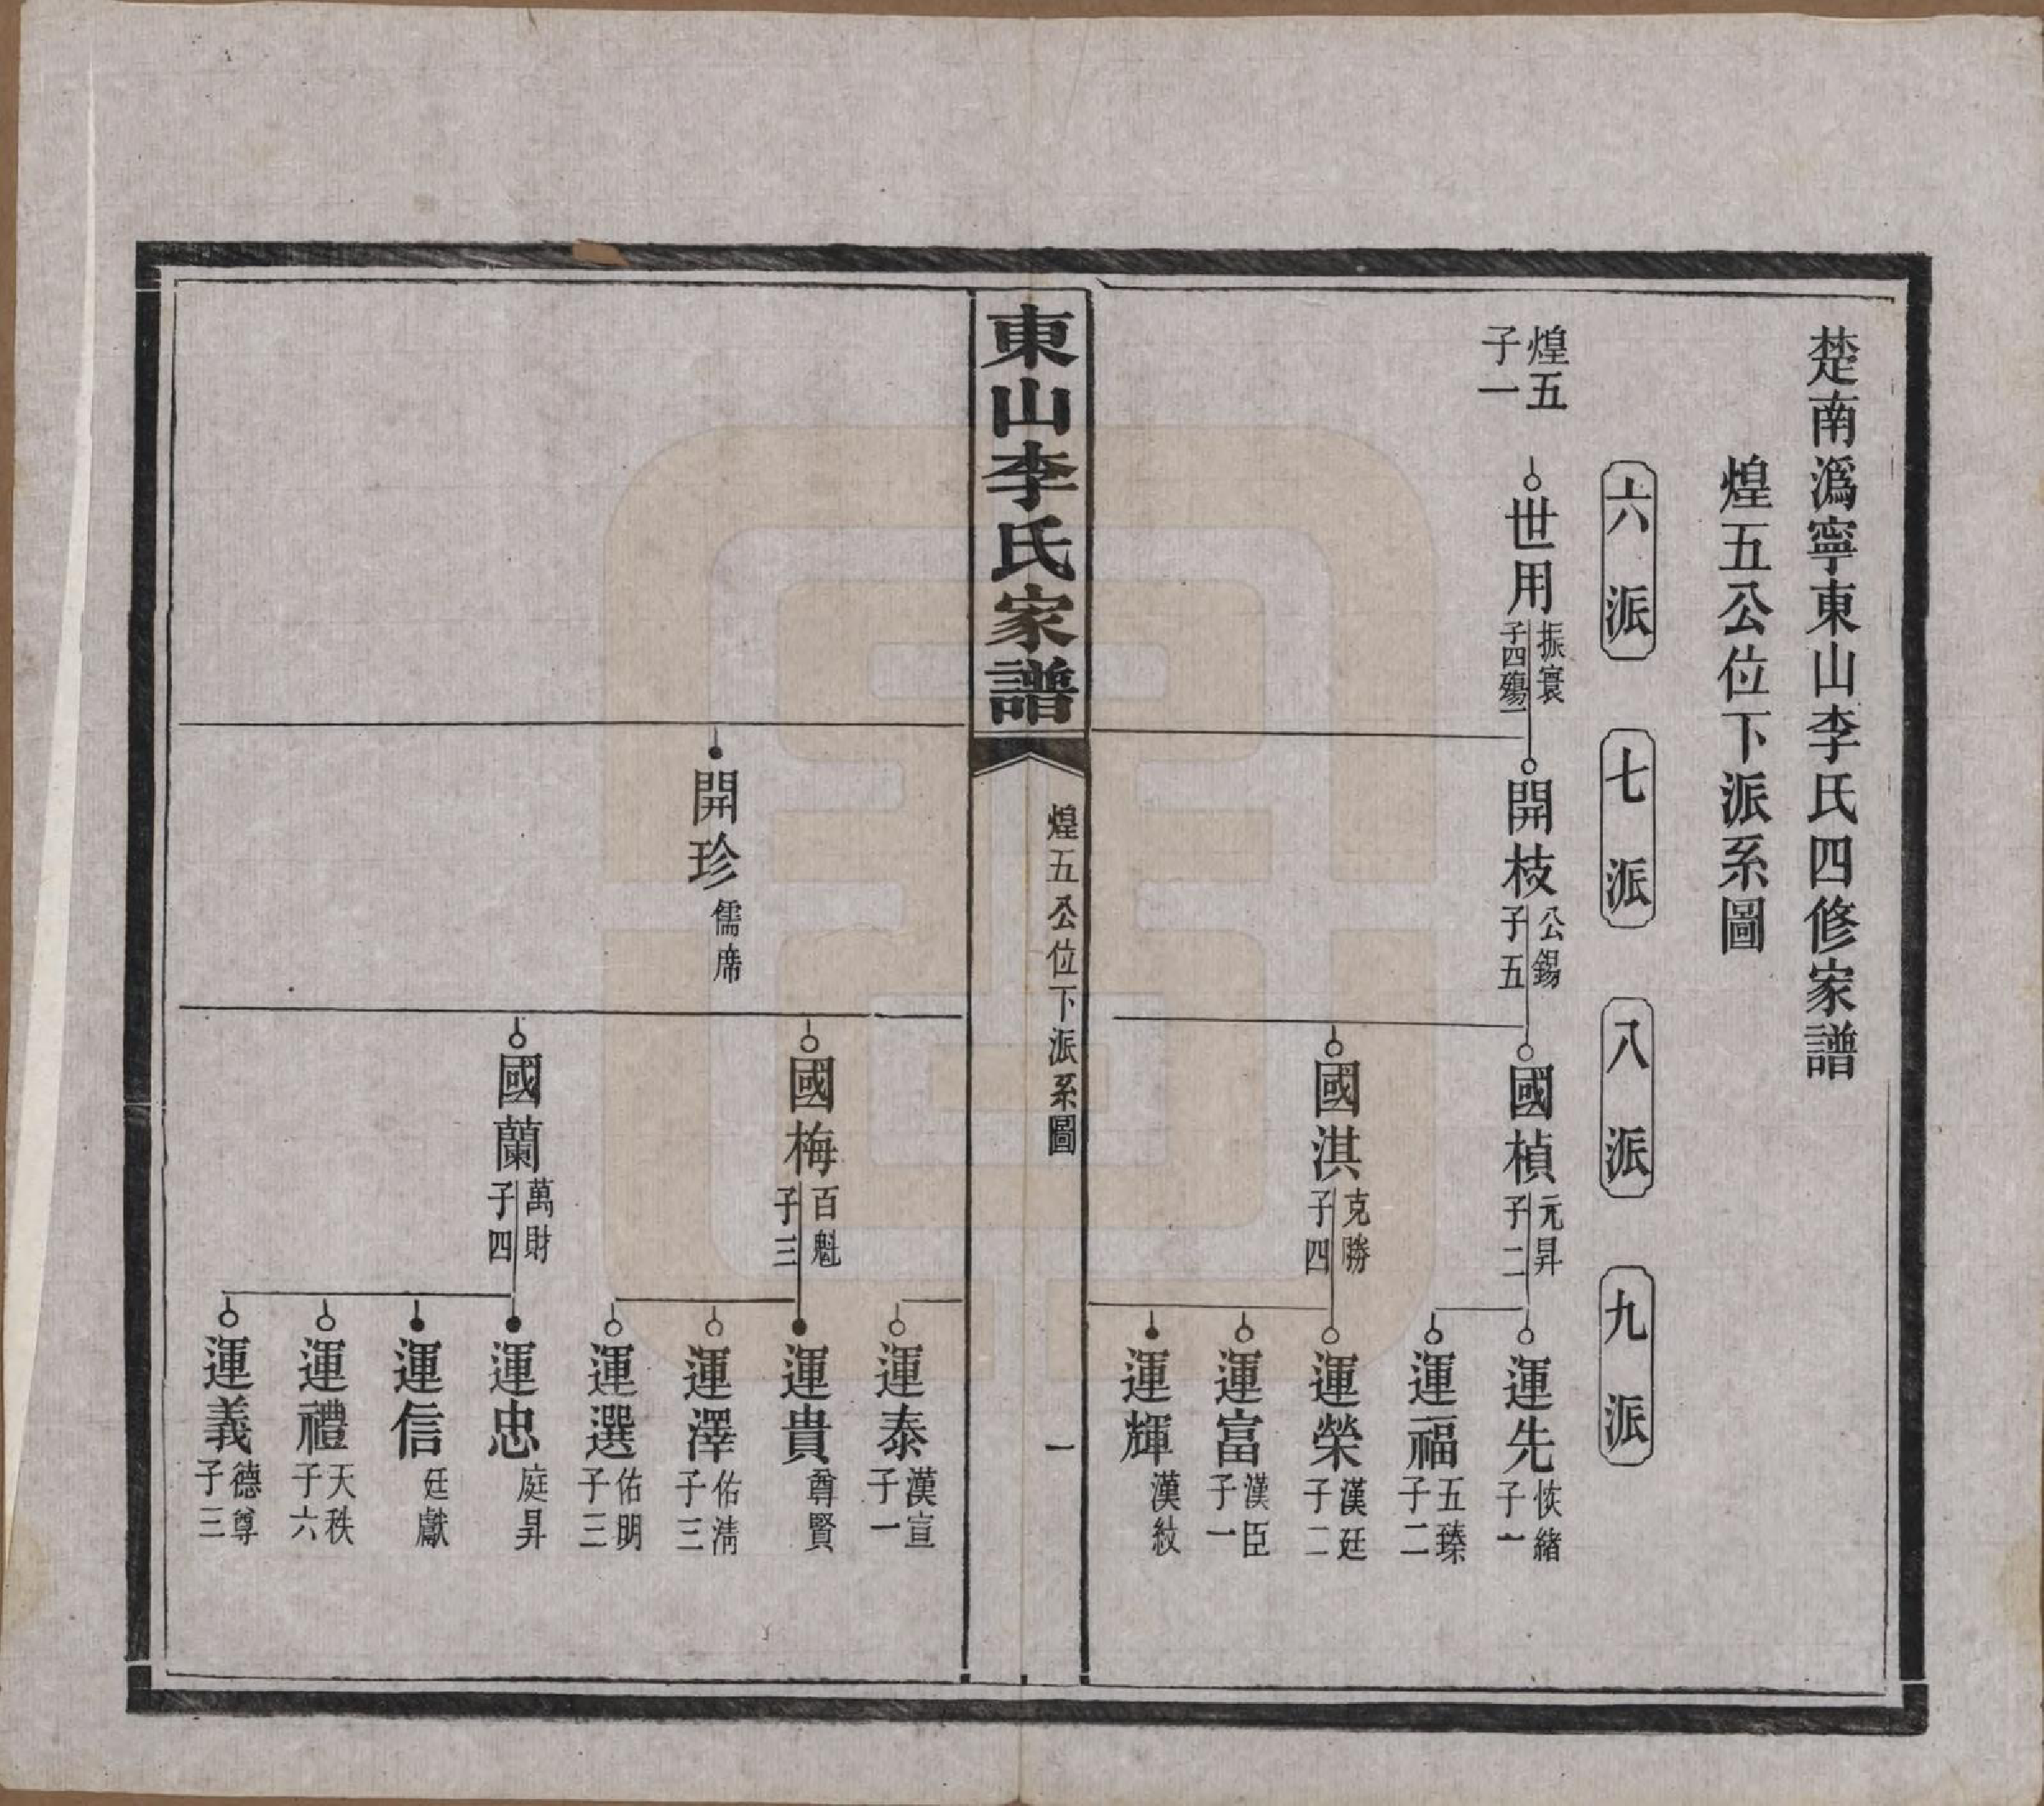 楚南溈寧東山李氏四修家譜
煌五公位下派系圖
六派
七派
八派
九派
煌五
子一
世用
振寰
子四殤一
開枝
公錫
子五
國楨
元昇
子二
運先
恢緒
子一
運福
五臻
子二
國淇
克勝
子四
運榮
漢廷
子二
運富
漢臣
子一
運輝
漢紋
東山李氏家譜
煌五公位下派系圖
一
運泰
漢宣
子一
開珍
儒席
國梅
百魁
子三
運貴
尊賢
運澤
佑清
子三
運選
佑明
子三
國蘭
萬財
子四
運忠
庭昇
運信
廷獻
運禮
天秩
子六
運義
德尊
子三